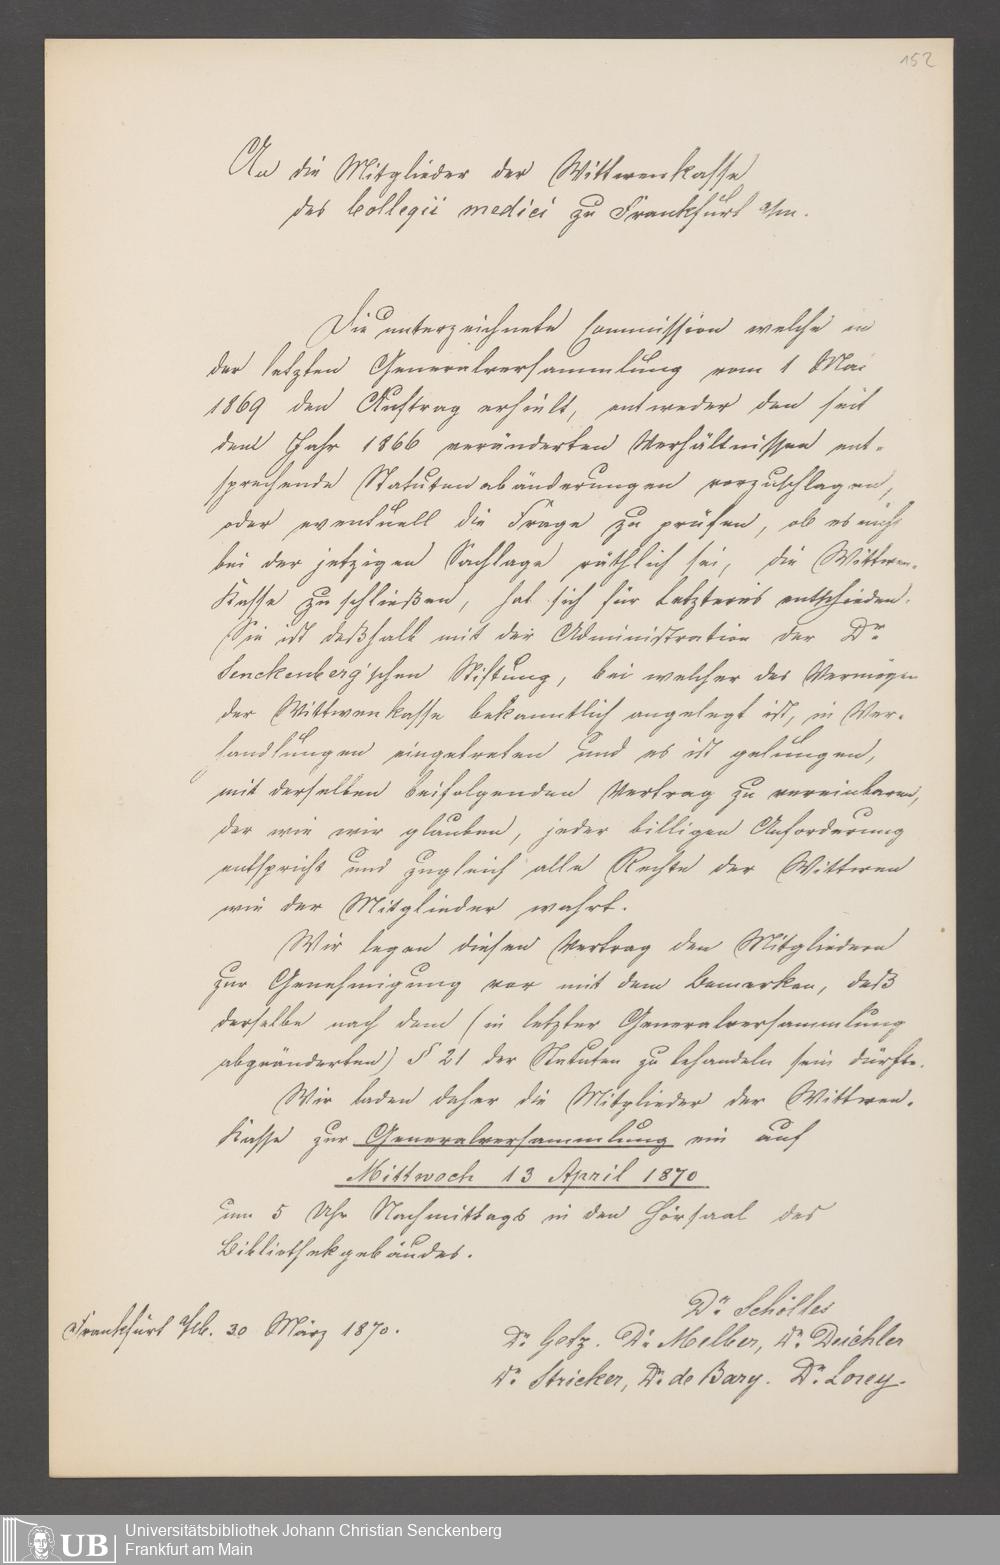 152
An die Mitglieder der Wittwenkasse
des Collegii medici zu Frankfurt a/m.
Die unterzeichnete Commission welche in
der letzten Generalversammlung vom 1 Mai
1869 den Auftrag erhielt, entweder den seit
dem Jahr 1866 veränderten Verhältnissen ent-
sprechende Statutenabänderungen vorzuschlagen,
oder eventuell die Frage zu prüfen, ob es nicht
bei der jetzigen Sachlage räthlich sei, die Wittwen-
Kasse zu schließen, hat sich für Letzteres entschieden.
Sie ist deßhalb mit der Administration der Dr
Senckenberg'schen Stiftung, bei welcher das Vermögen
der Wittwenkasse bekanntlich angelegt ist, in Ver-
handlungen eingetreten und es ist gelungen,
mit derselben beifolgenden Vertrag zu vereinbaren,
der wie wir glauben, jeder billigen Anforderung
entspricht und zugleich alle Rechte der Wittwen
wie der Mitglieder wahrt.
Wir legen diesen Vertrag den Mitgliedern
zur Genehmigung vor mit dem Bemerken, daß
derselbe nach dem (in letzter Generalversammlung
abgeänderten) § 21 der Statuten zu behandeln sein dürfte.
Wir laden daher die Mitglieder der Wittwen-
Kasse zur Generalversammlung ein auf
Mittwoch 13 April 1870
um 5 Uhr Nachmittags in den Hörsaal des
Bibliothekgebäudes.
Frankfurt 30 März 1870.
Dr Schölles
Dr. Getz. Dr. Melber, Dr. Deichler
Dr. Stricker, Dr. de Bary. Dr. Lorey.
UB
Universitätsbibliothek Johann Christian Senckenberg
Frankfurt am Main